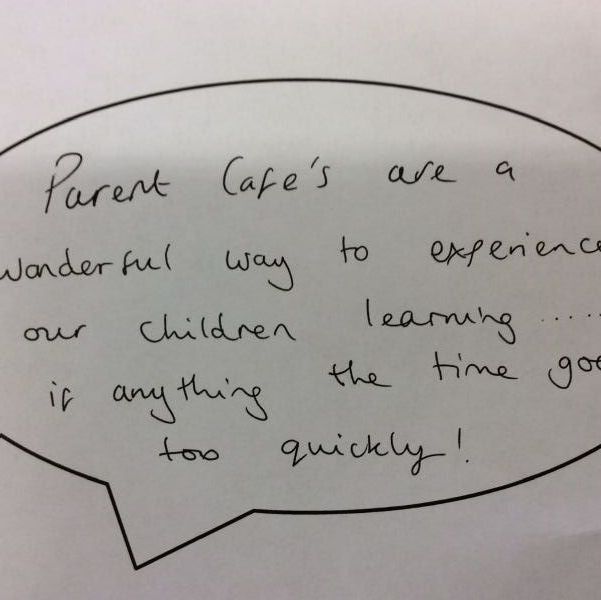 Parent Cafe's are a
wonderful way to experience
our children learning .....
if anything the time goe
too quickly!